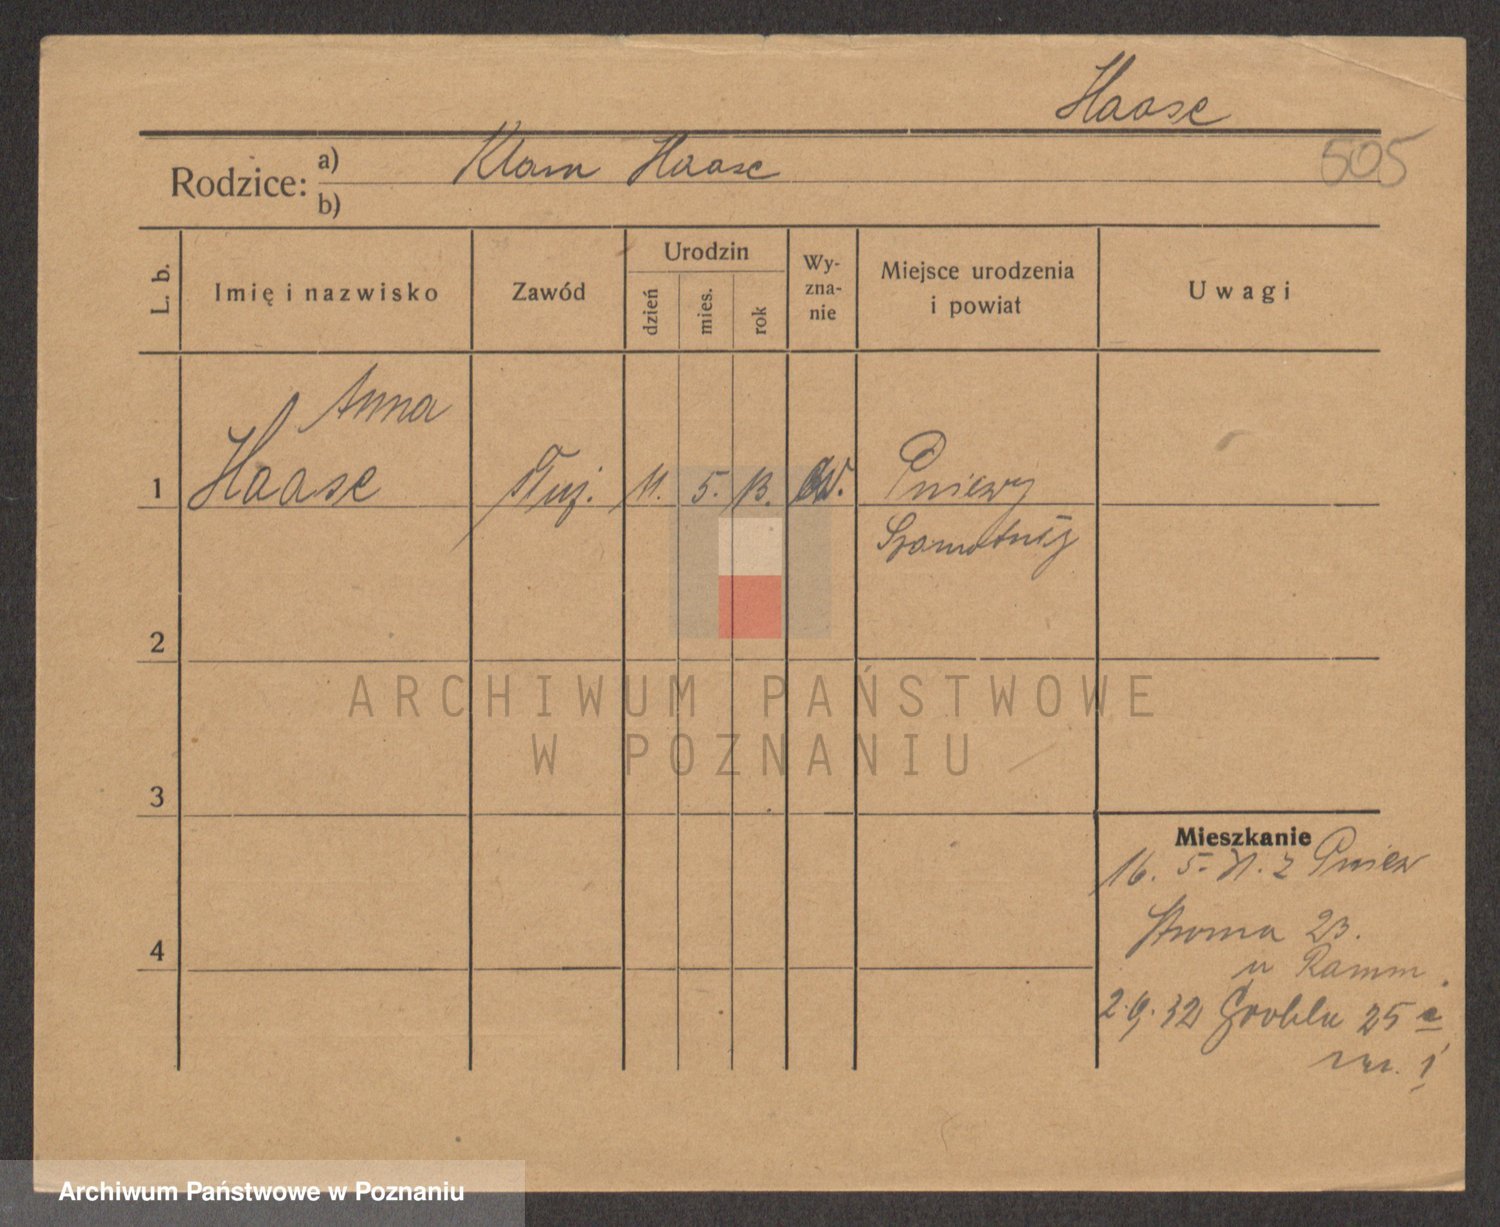 Haase
505
Rodzice: a) Klara Haase
b)
L. b. Imię i nazwisko Zawód Urodzin dzień mies. rok Wy-zna-nie Miejsce urodzenia i powiat Uwagi
Anna
1 Haase Służ. 11. 5. 13. ew. Pniewy
Szamotuły
2
ARCHIWUM PAŃSTWOWE
W POZNANIU
3
Mieszkanie
16. 5. 31. z Pniew
4 Stroma 23.
u Ramm.
2.9.32 Grobla 25 a
m. 1
Archiwum Państwowe w Poznaniu